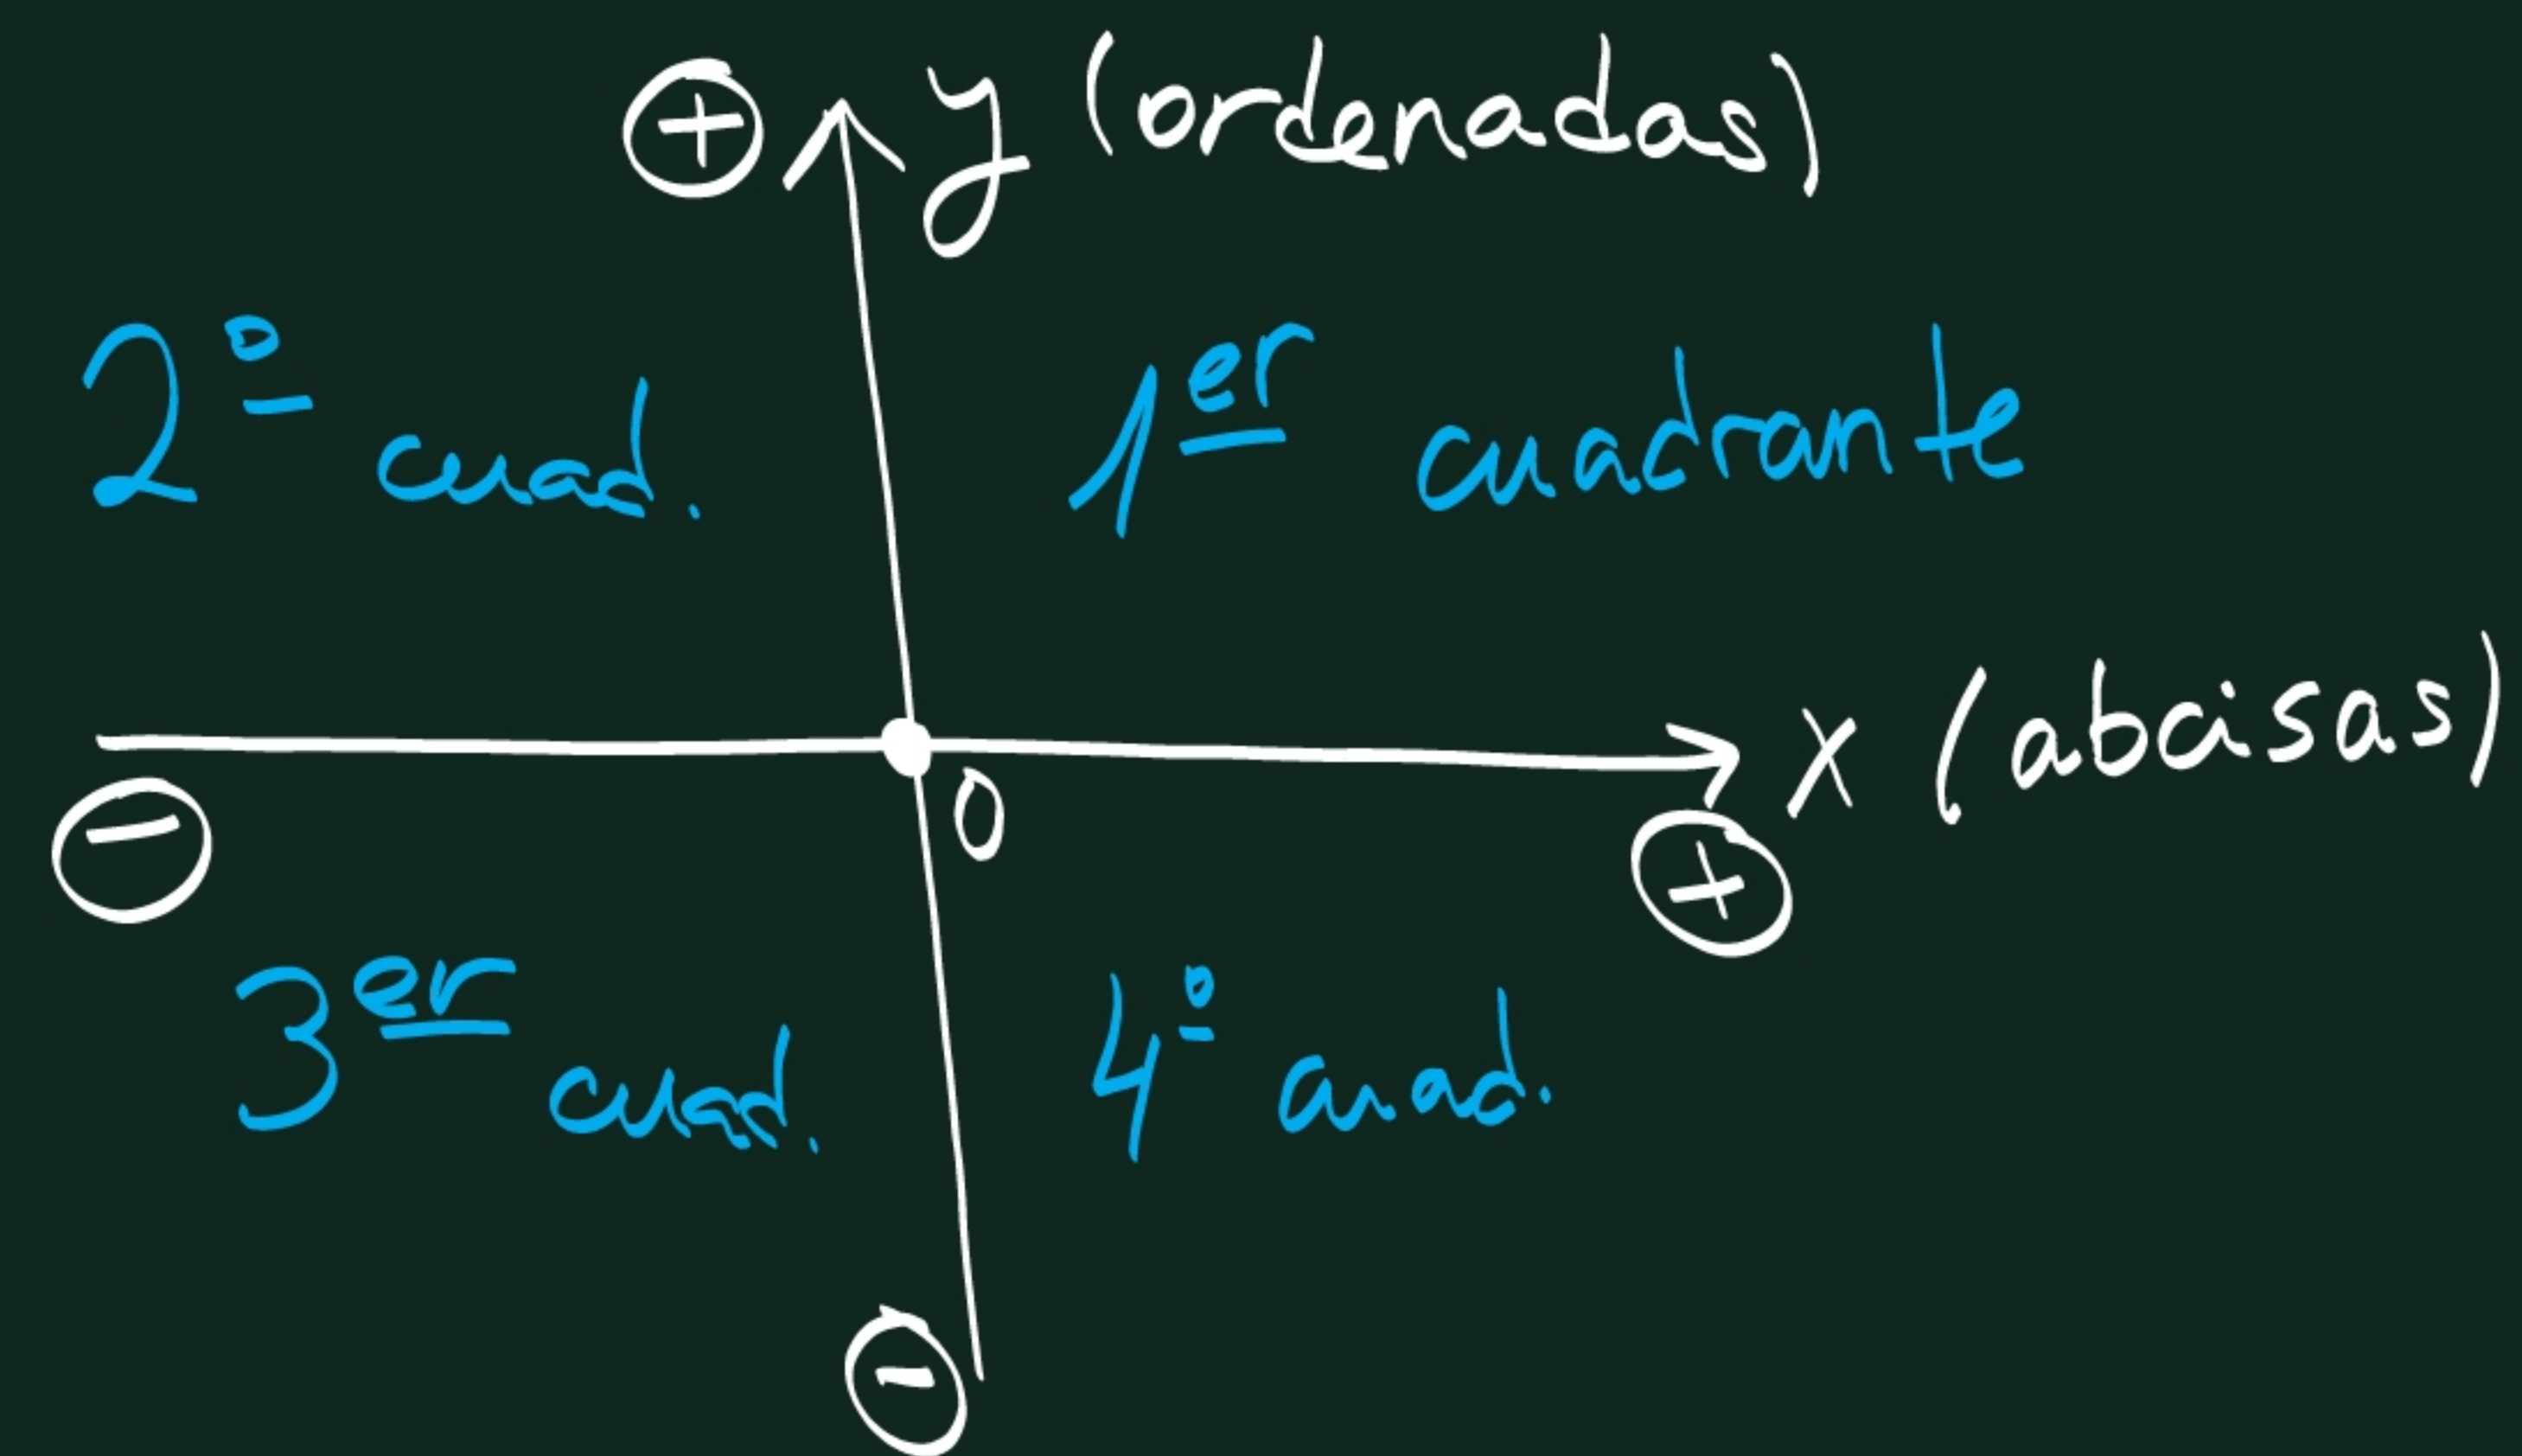 ⊕ y (ordenadas)
2º cuad.
1er cuadrante
x (abcisas)
⊖ 0 ⊕
3er cuad.
4º cuad.
⊖